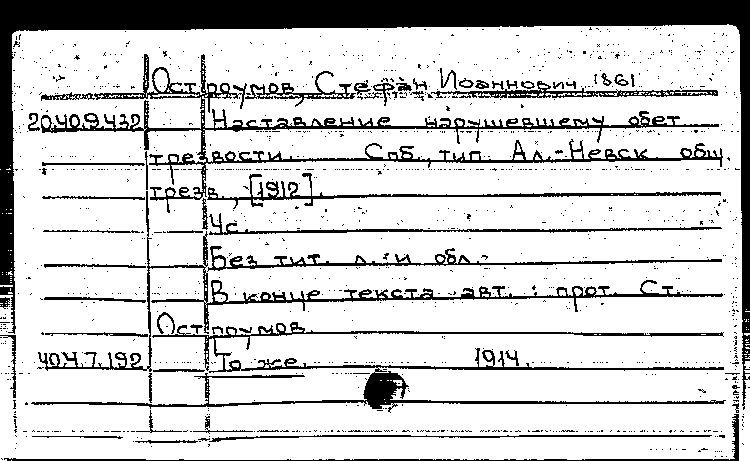 Остроумов, Стефан Иоаннович, 1861
20.40.9.432 Наставление нарушевшему обет
трезвости. Спб., тип. Ал.-Невск. общ.
трезв., [1912].
4с.
Без тит. л. и обл.
В конце текста авт.: прот. Ст.
Остроумов.
40.4.7.192 То же. 1914.